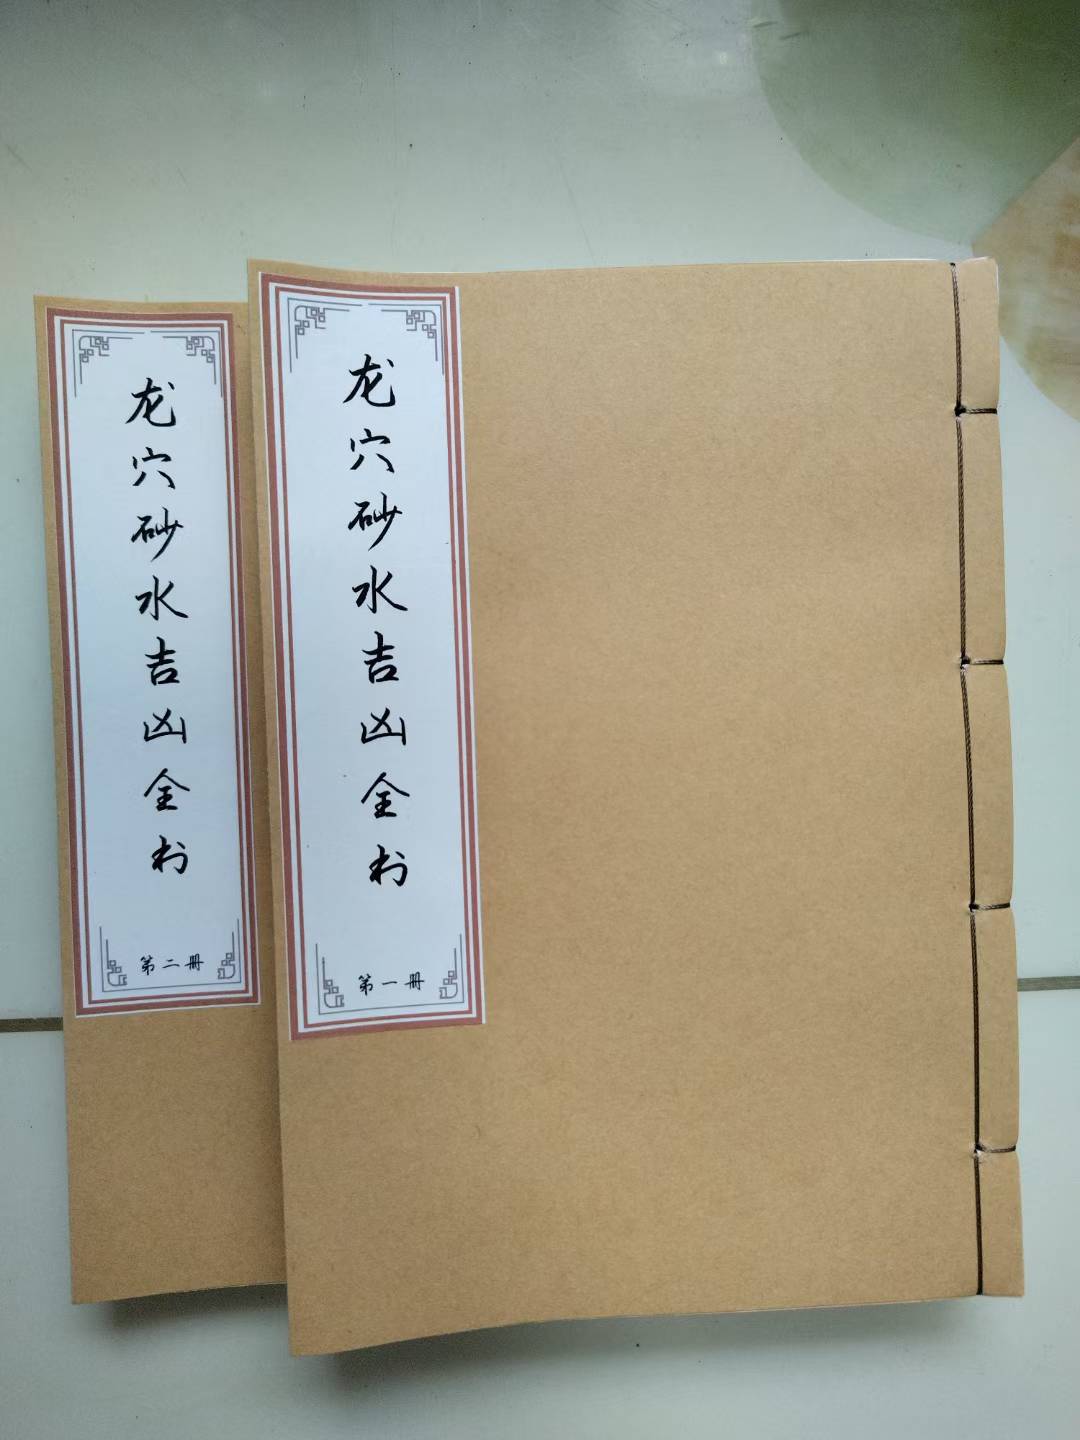 龙穴砂水吉凶全书
第一册
龙穴砂水吉凶全书
第二册